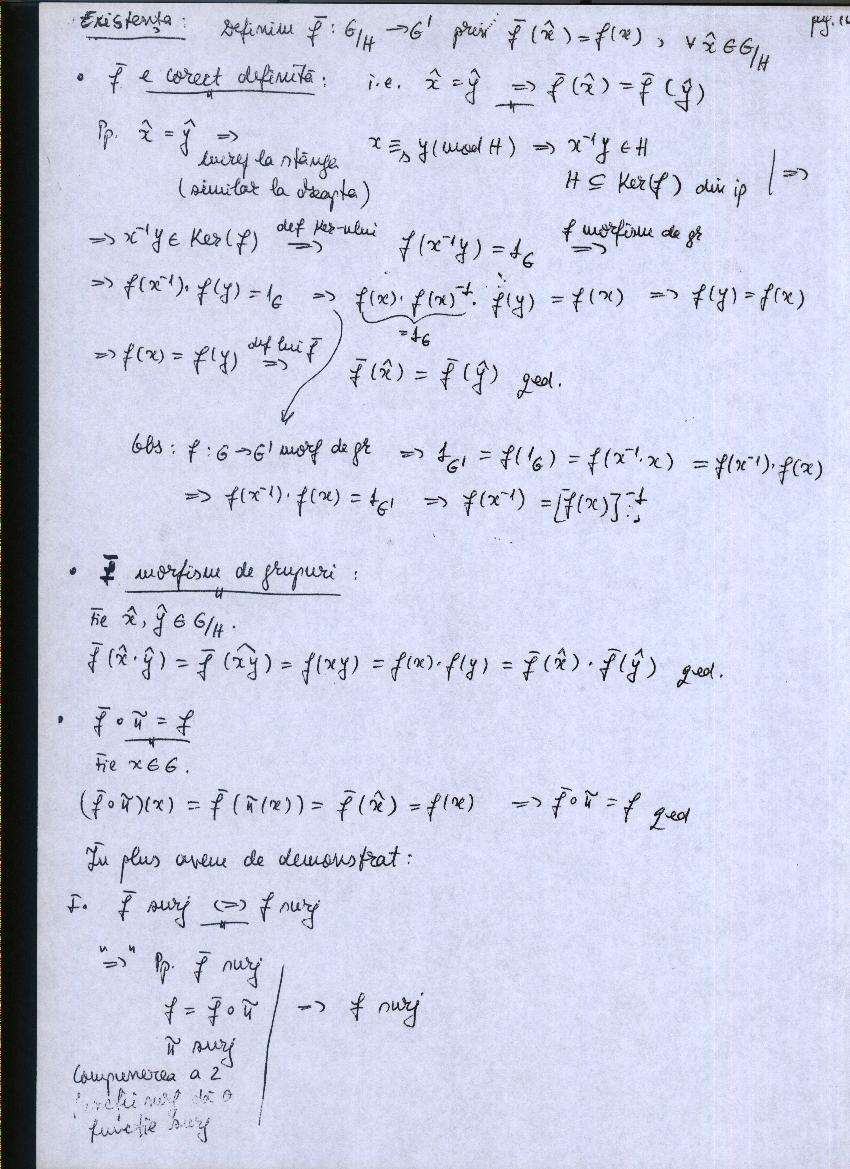 Existența: Definim f̄ : G/H → G' prin f̄(x̂) = f(x), ∀ x̂ ∈ G/H
• f̄ e corect definită: i.e. x̂ = ŷ ⇒ f̄(x̂) = f̄(ŷ)
Pp. x̂ = ŷ ⇒ x ≡ₛ y (mod H) ⇒ x⁻¹y ∈ H
lucrez la stânga
(similar la dreapta) H ⊆ Ker(f) din ip | ⇒
⇒ x⁻¹y ∈ Ker(f) def Ker-ului ⇒ f(x⁻¹y) = 1_G f morfism de gr ⇒
⇒ f(x⁻¹)·f(y) = 1_G ⇒ f(x)·f(x)⁻¹·f(y) = f(x) ⇒ f(y) = f(x)
= 1_G
⇒ f(x) = f(y) def lui f̄ ⇒ f̄(x̂) = f̄(ŷ) qed.
Obs: f : G → G' morf de gr ⇒ 1_G' = f(1_G) = f(x⁻¹·x) = f(x⁻¹)·f(x)
⇒ f(x⁻¹)·f(x) = 1_G' ⇒ f(x⁻¹) = [f(x)]⁻¹
• f̄ morfism de grupuri:
Fie x̂, ŷ ∈ G/H.
f̄(x̂·ŷ) = f̄(x͡y) = f(xy) = f(x)·f(y) = f̄(x̂)·f̄(ŷ) qed.
• f̄ ∘ π = f
Fie x ∈ G.
(f̄∘π)(x) = f̄(π(x)) = f̄(x̂) = f(x) ⇒ f̄∘π = f qed
În plus avem de demonstrat:
I. f̄ surj ⇔ f surj
"⇒" Pp. f̄ surj
f = f̄∘π | ⇒ f surj
π surj
Compunerea a 2
funcții surj dă o
funcție surj